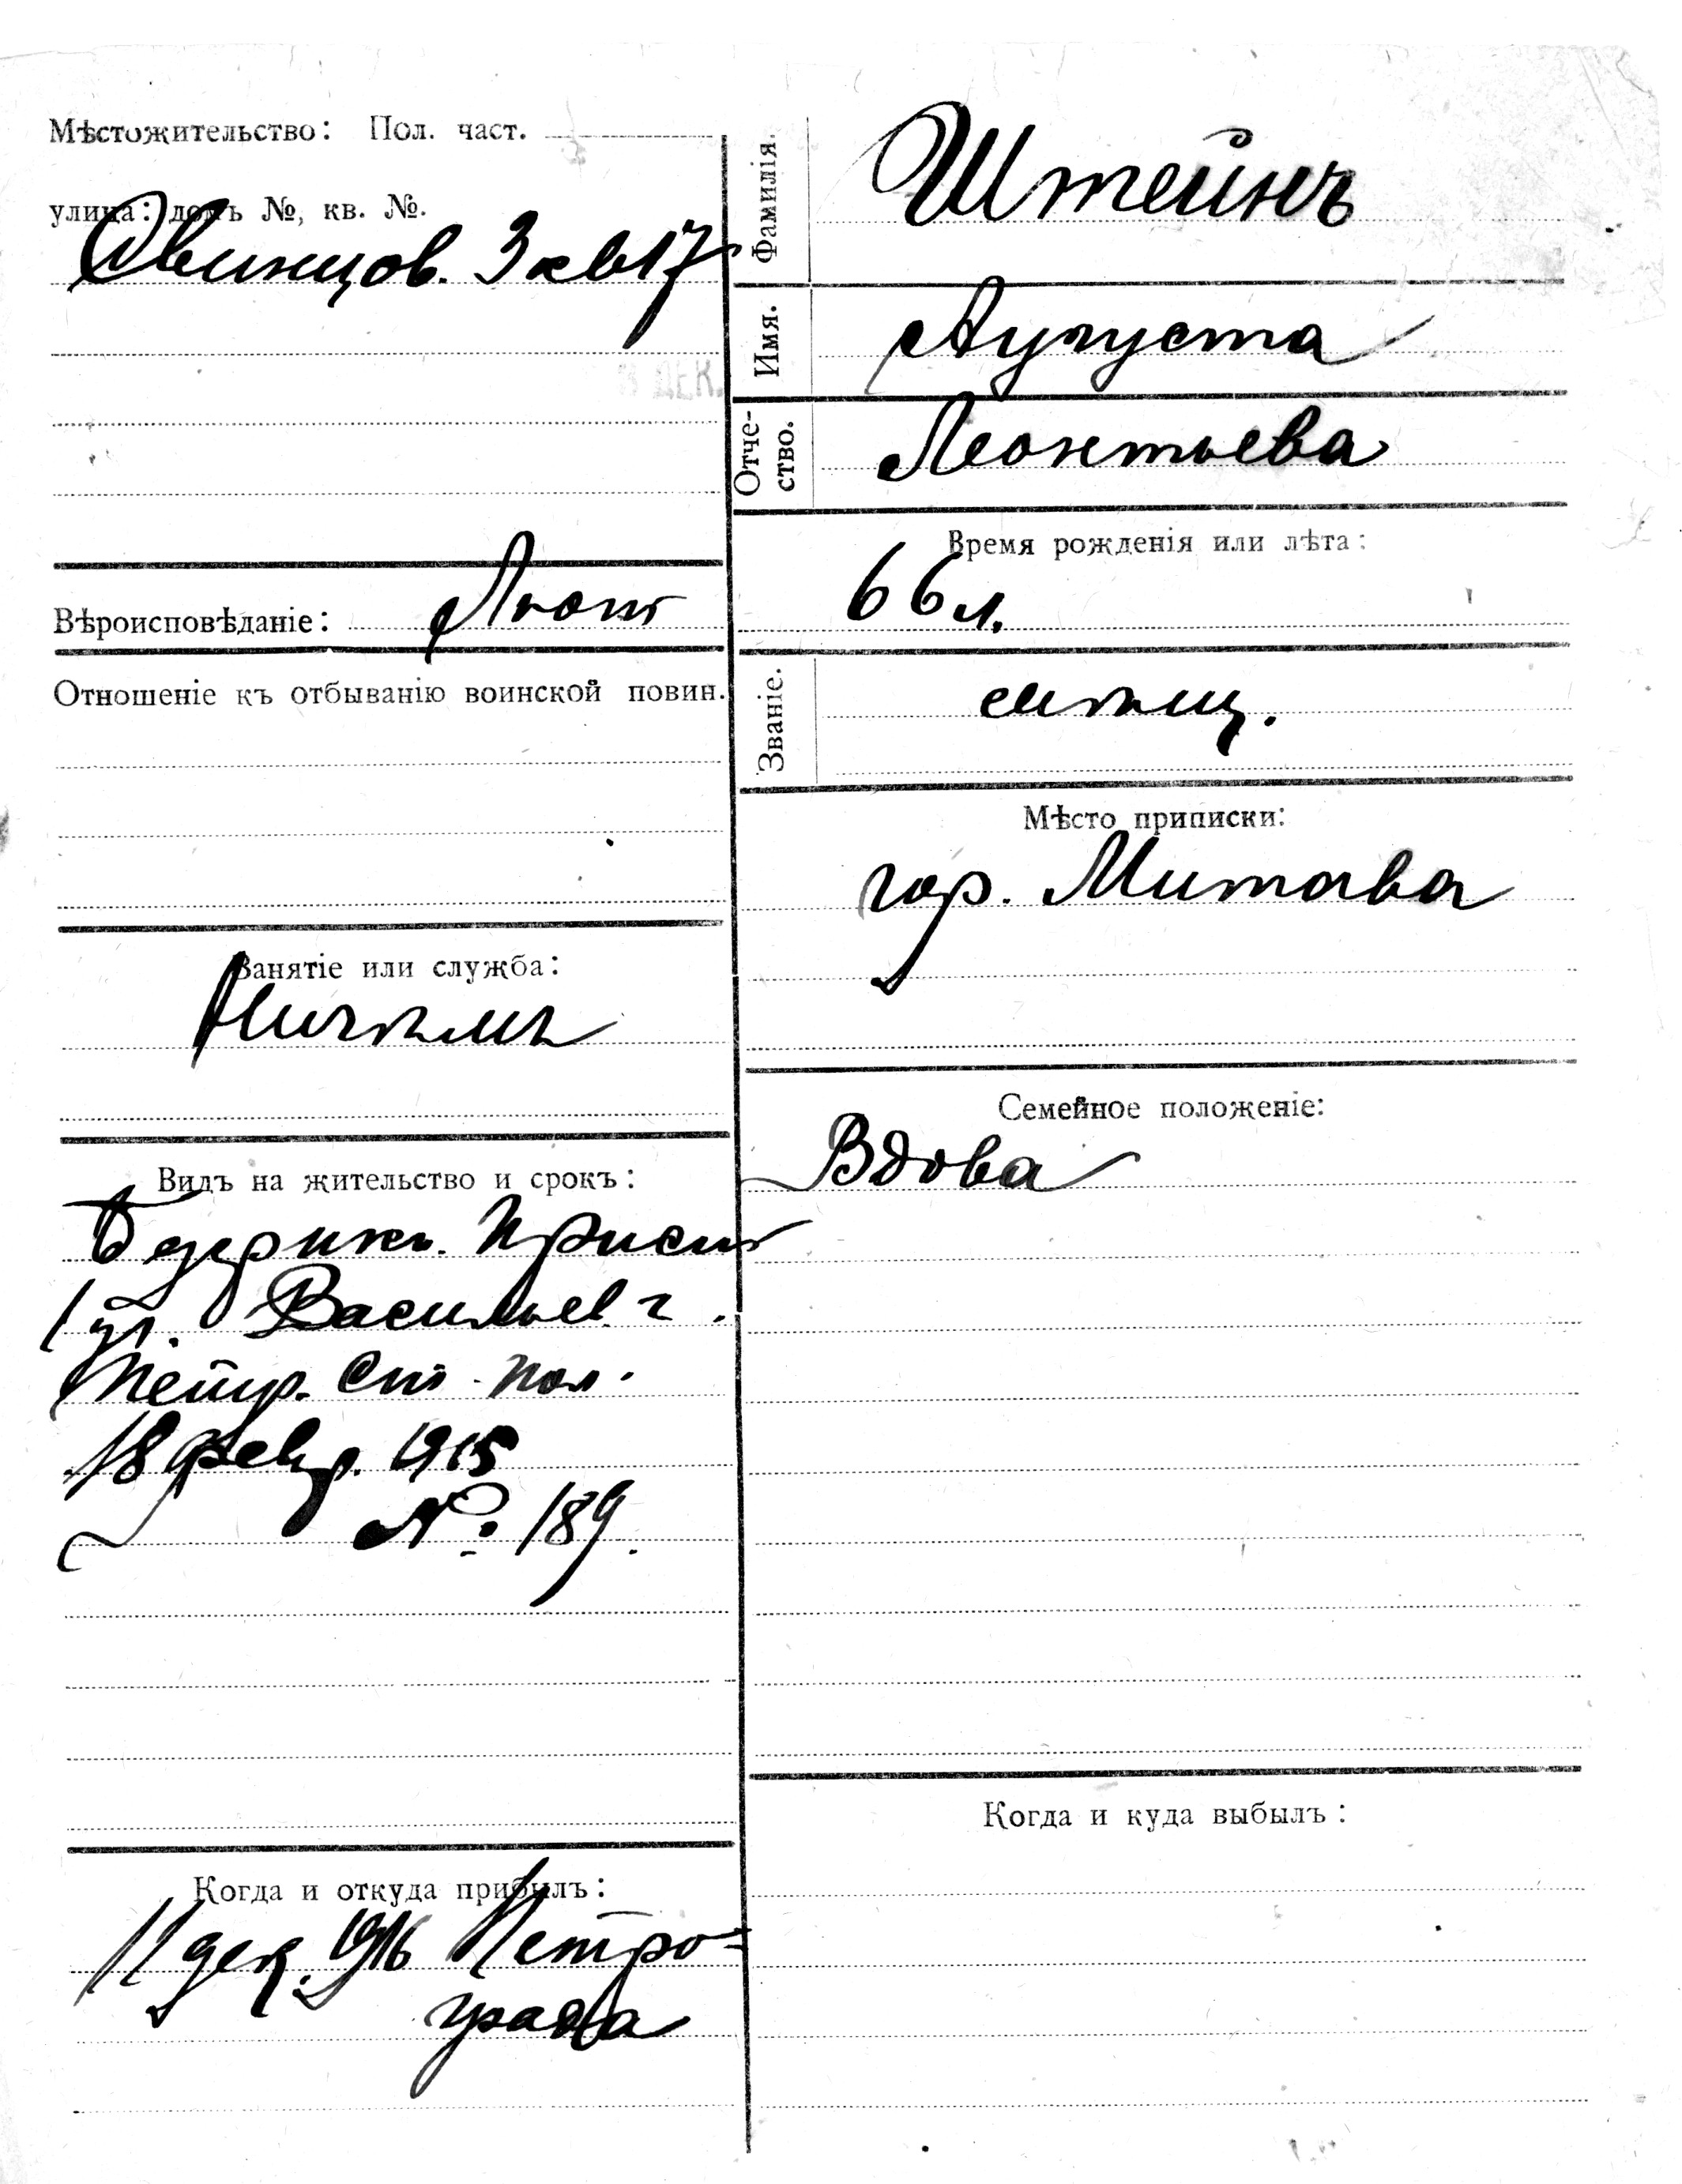 Мѣстожительство: Пол. част.
улица: домъ №, кв. №.
Свинцов. 3 кв 17
ДЕК.
Вѣроисповѣданіе: Лют
Отношеніе къ отбыванію воинской повин.
Занятіе или служба:
Ничѣмъ
Видъ на жительство и срокъ:
Безсрочн. Прист
1 уч. Васильев. ч.
Петр. Ст. пол.
18 февр. 1915
№ 189.
Когда и откуда прибылъ:
11 дек. 1916 Петро-
града
Фамилія. Штейнъ
Имя. Аугуста
Отче-
ство. Леонтьева
Время рожденія или лѣта:
66 л.
Званіе. мѣщ.
Мѣсто приписки:
гор. Митава
Семейное положеніе:
Вдова
Когда и куда выбылъ: